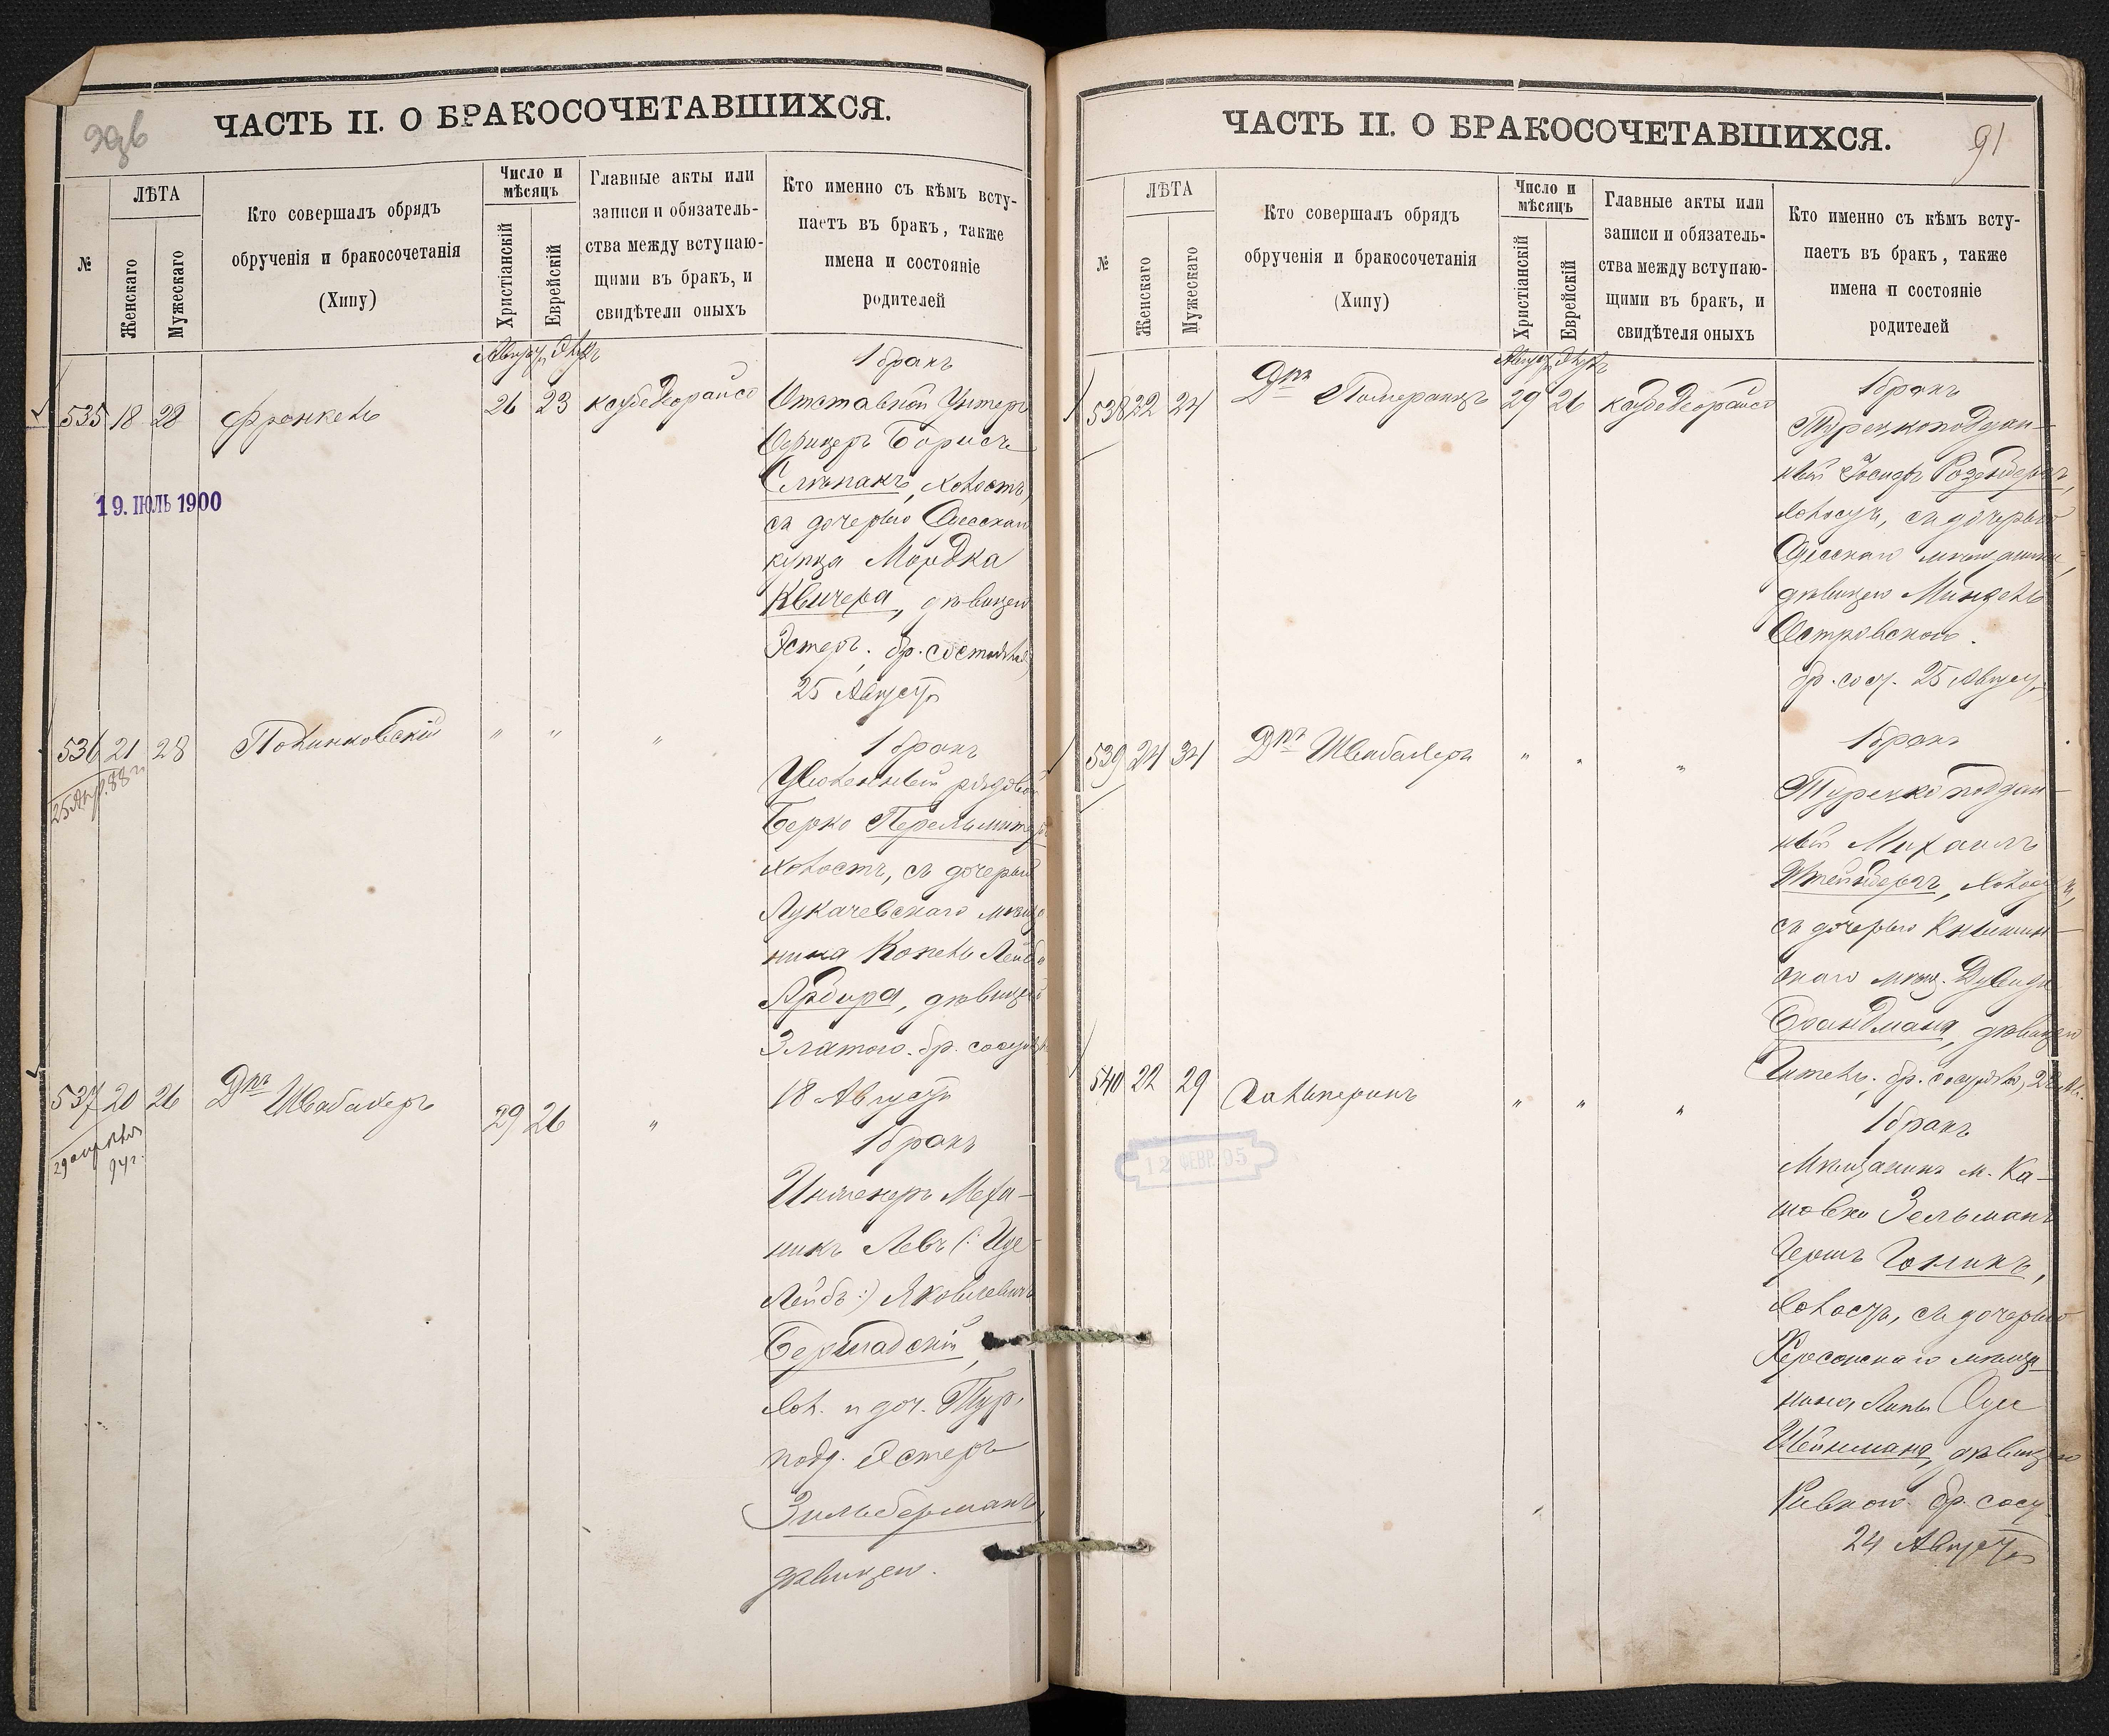 ЧАСТЬ II. О БРАКОСОЧЕТАВШИХСЯ.
№
ЛѢТА
Женскаго
Мужескаго
Кто совершалъ обрядъ
обрученія и бракосочетанія
(Хипу)
Число и
мѣсяцъ
Христіанскій
Еврейскій
Главные акты или
записи и обязатель-
ства между вступаю-
щими въ бракъ, и
свидѣтели оныхъ
Кто именно съ кѣмъ всту-
паетъ въ бракъ, также
имена и состояніе
родителей
535 18 28 Френкель 26 23
1 бракъ
Отставной Унтеръ
Офицеръ Борисъ
Слѣпакъ, холостъ,
съ дочерью Одесскаго
купца Мордка
Квичера, дѣвицею
Эстеръ. бр. состоялся
25 Августа
19. ІЮЛЬ 1900
536 21 28 Полинковскій " " "
25 Апр. 88 г.
1 бракъ
Уволенный рядовой
Берко Перельмитеръ
холостъ, съ дочерью
Лукачевскаго мѣща
нина Копель Лейба
Ярдира, дѣвицею
Златою. бр. состоял
18 Августа
537 20 26 Дръ Швабахеръ 29 26 "
29 апрѣля
94 г.
1 бракъ
Инженеръ Меха-
никъ Левъ (: Иде
Лейбъ :) Яковлевичъ
Бершадскій,
хол. и доч. Тур.
подд. Эстеръ
Зильберманъ,
дѣвицею.
ЧАСТЬ II. О БРАКОСОЧЕТАВШИХСЯ.
91
№
ЛѢТА
Женскаго
Мужескаго
Кто совершалъ обрядъ
обрученія и бракосочетанія
(Хипу)
Число и
мѣсяцъ
Христіанскій
Еврейскій
Главные акты или
записи и обязатель-
ства между вступаю-
щими въ бракъ, и
свидѣтели оныхъ
Кто именно съ кѣмъ всту-
паетъ въ бракъ, также
имена и состояніе
родителей
538 22 24 Дръ Померанцъ 29 26
1 бракъ
Турецкоподдан-
ный Іосифъ Розенбергъ,
холостъ, съ дочерью
Одесскаго мѣщанина,
дѣвицею Миндель
Островскаго.
бр. сост. 25 Августа
539 24 34 Дръ Швабахеръ " " "
1 бракъ
Турецкоподдан-
ный Михаилъ
Штейнбергъ, холостъ,
съ дочерью Кишинев-
скаго мѣщ. Дувида
Брандмана, дѣвицею
Гитель. бр. состоялся 28 Ав.
540 22 29 Гальперинъ " " "
12 ФЕВР. 95
1 бракъ
Мѣщанинъ м. Ка-
шовки Зельманъ
Гершъ Голикъ,
холостъ, съ дочерью
Херсонскаго мѣща
нина Липы
Шейнмана, дѣвицею
Ривкою. бр. сост.
24 Августа